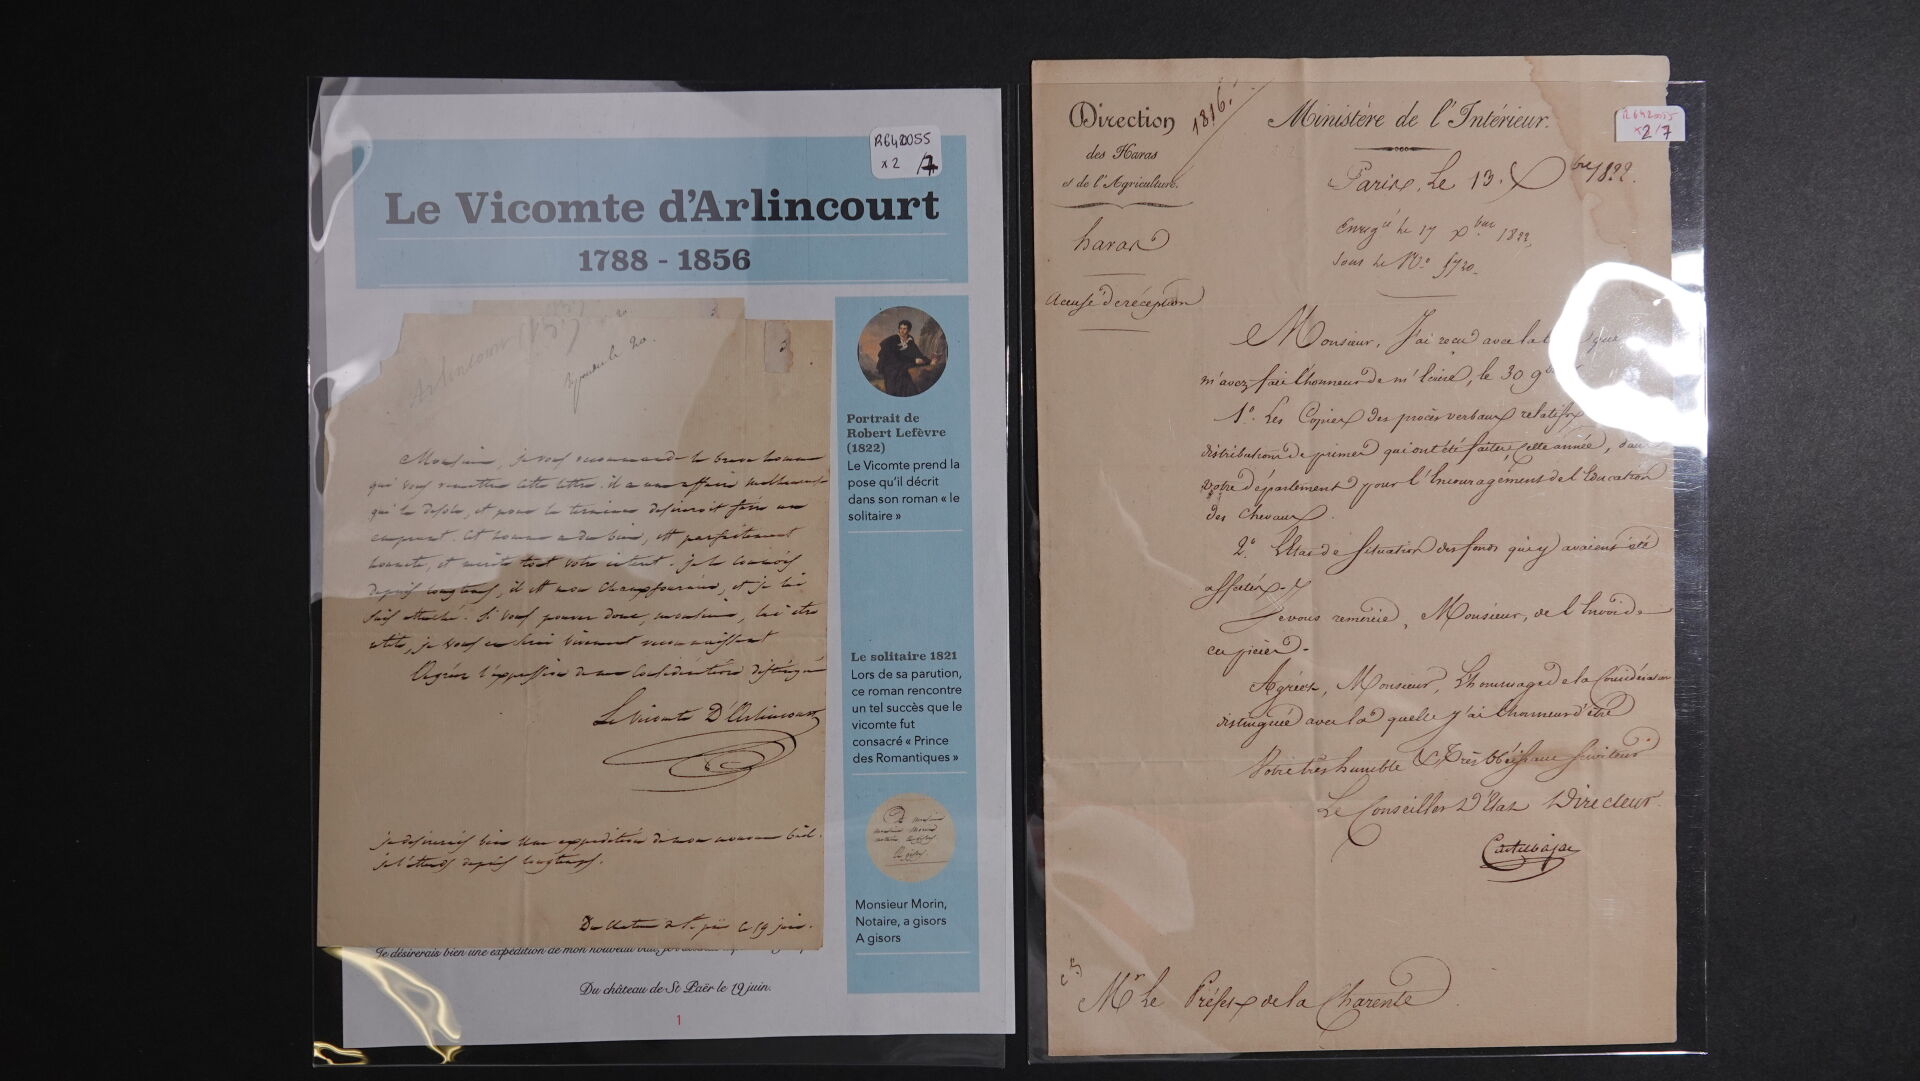 R642055
x2 /7
Le Vicomte d'Arlincourt
1788 - 1856
Arlincourt
3
répondu le 20.
Monsieur, je vous recommande le brave homme
qui vous remettra cette lettre. il a une affaire malheureuse
qui le désole, et pour la terminer desireroit faire un
emprunt. cet homme a du bien, est parfaitement
honnete, et mérite tout votre intéret. je le connois
depuis longtemps, il est mon chaufournier, et je lui
suis attaché. Si vous pouvez donc, monsieur, lui etre
utile, je vous en serai vivement reconnaissant
Agréez l'expression de ma considération distinguée
Le Vicomte D'Arlincourt
je desirerais bien une expédition de mon nouveau bail.
je l'attends depuis longtemps.
Du chateau de St. paër le 19 juin.
Je désirerais bien une expédition de mon nouveau bail,
Du château de St Paër le 19 juin.
1
Portrait de
Robert Lefèvre
(1822)
Le Vicomte prend la
pose qu'il décrit
dans son roman « le
solitaire »
Le solitaire 1821
Lors de sa parution,
ce roman rencontre
un tel succès que le
vicomte fut
consacré « Prince
des Romantiques »
A monsieur
monsieur Morin
notaire, a gisors
A gisors
Monsieur Morin,
Notaire, a gisors
A gisors
Direction
des Haras
et de l'Agriculture.
1816.
haras
Accusé de réception
Ministère de l'Intérieur.
R642055
x2/7
Paris, Le 13. Xbre 1822.
Enregé le 17 Xbre 1822,
sous le No. 5720.
Monsieur, J'ai reçu avec la que
m'avez fait l'honneur de m'écrire, le 30 9bre
1o. Les Copies des procès verbaux relatifs
distributions de primes qui ont été faites, cette année, dans
votre département pour l'Encouragement de l'Education
des Chevaux.
2o. L'Etat de Situation des fonds qui y avaient été
affectés.
Je vous remercie, Monsieur, de l'Envoi de
ces pièces.
Agréez, Monsieur, L'hommage de la Considération
distinguée avec la quelle j'ai l'honneur d'être
Votre très humble & Très Obéissant Serviteur
Le Conseiller D'Etat Directeur.
Castelbajac
Mr Le Préfet de la Charente